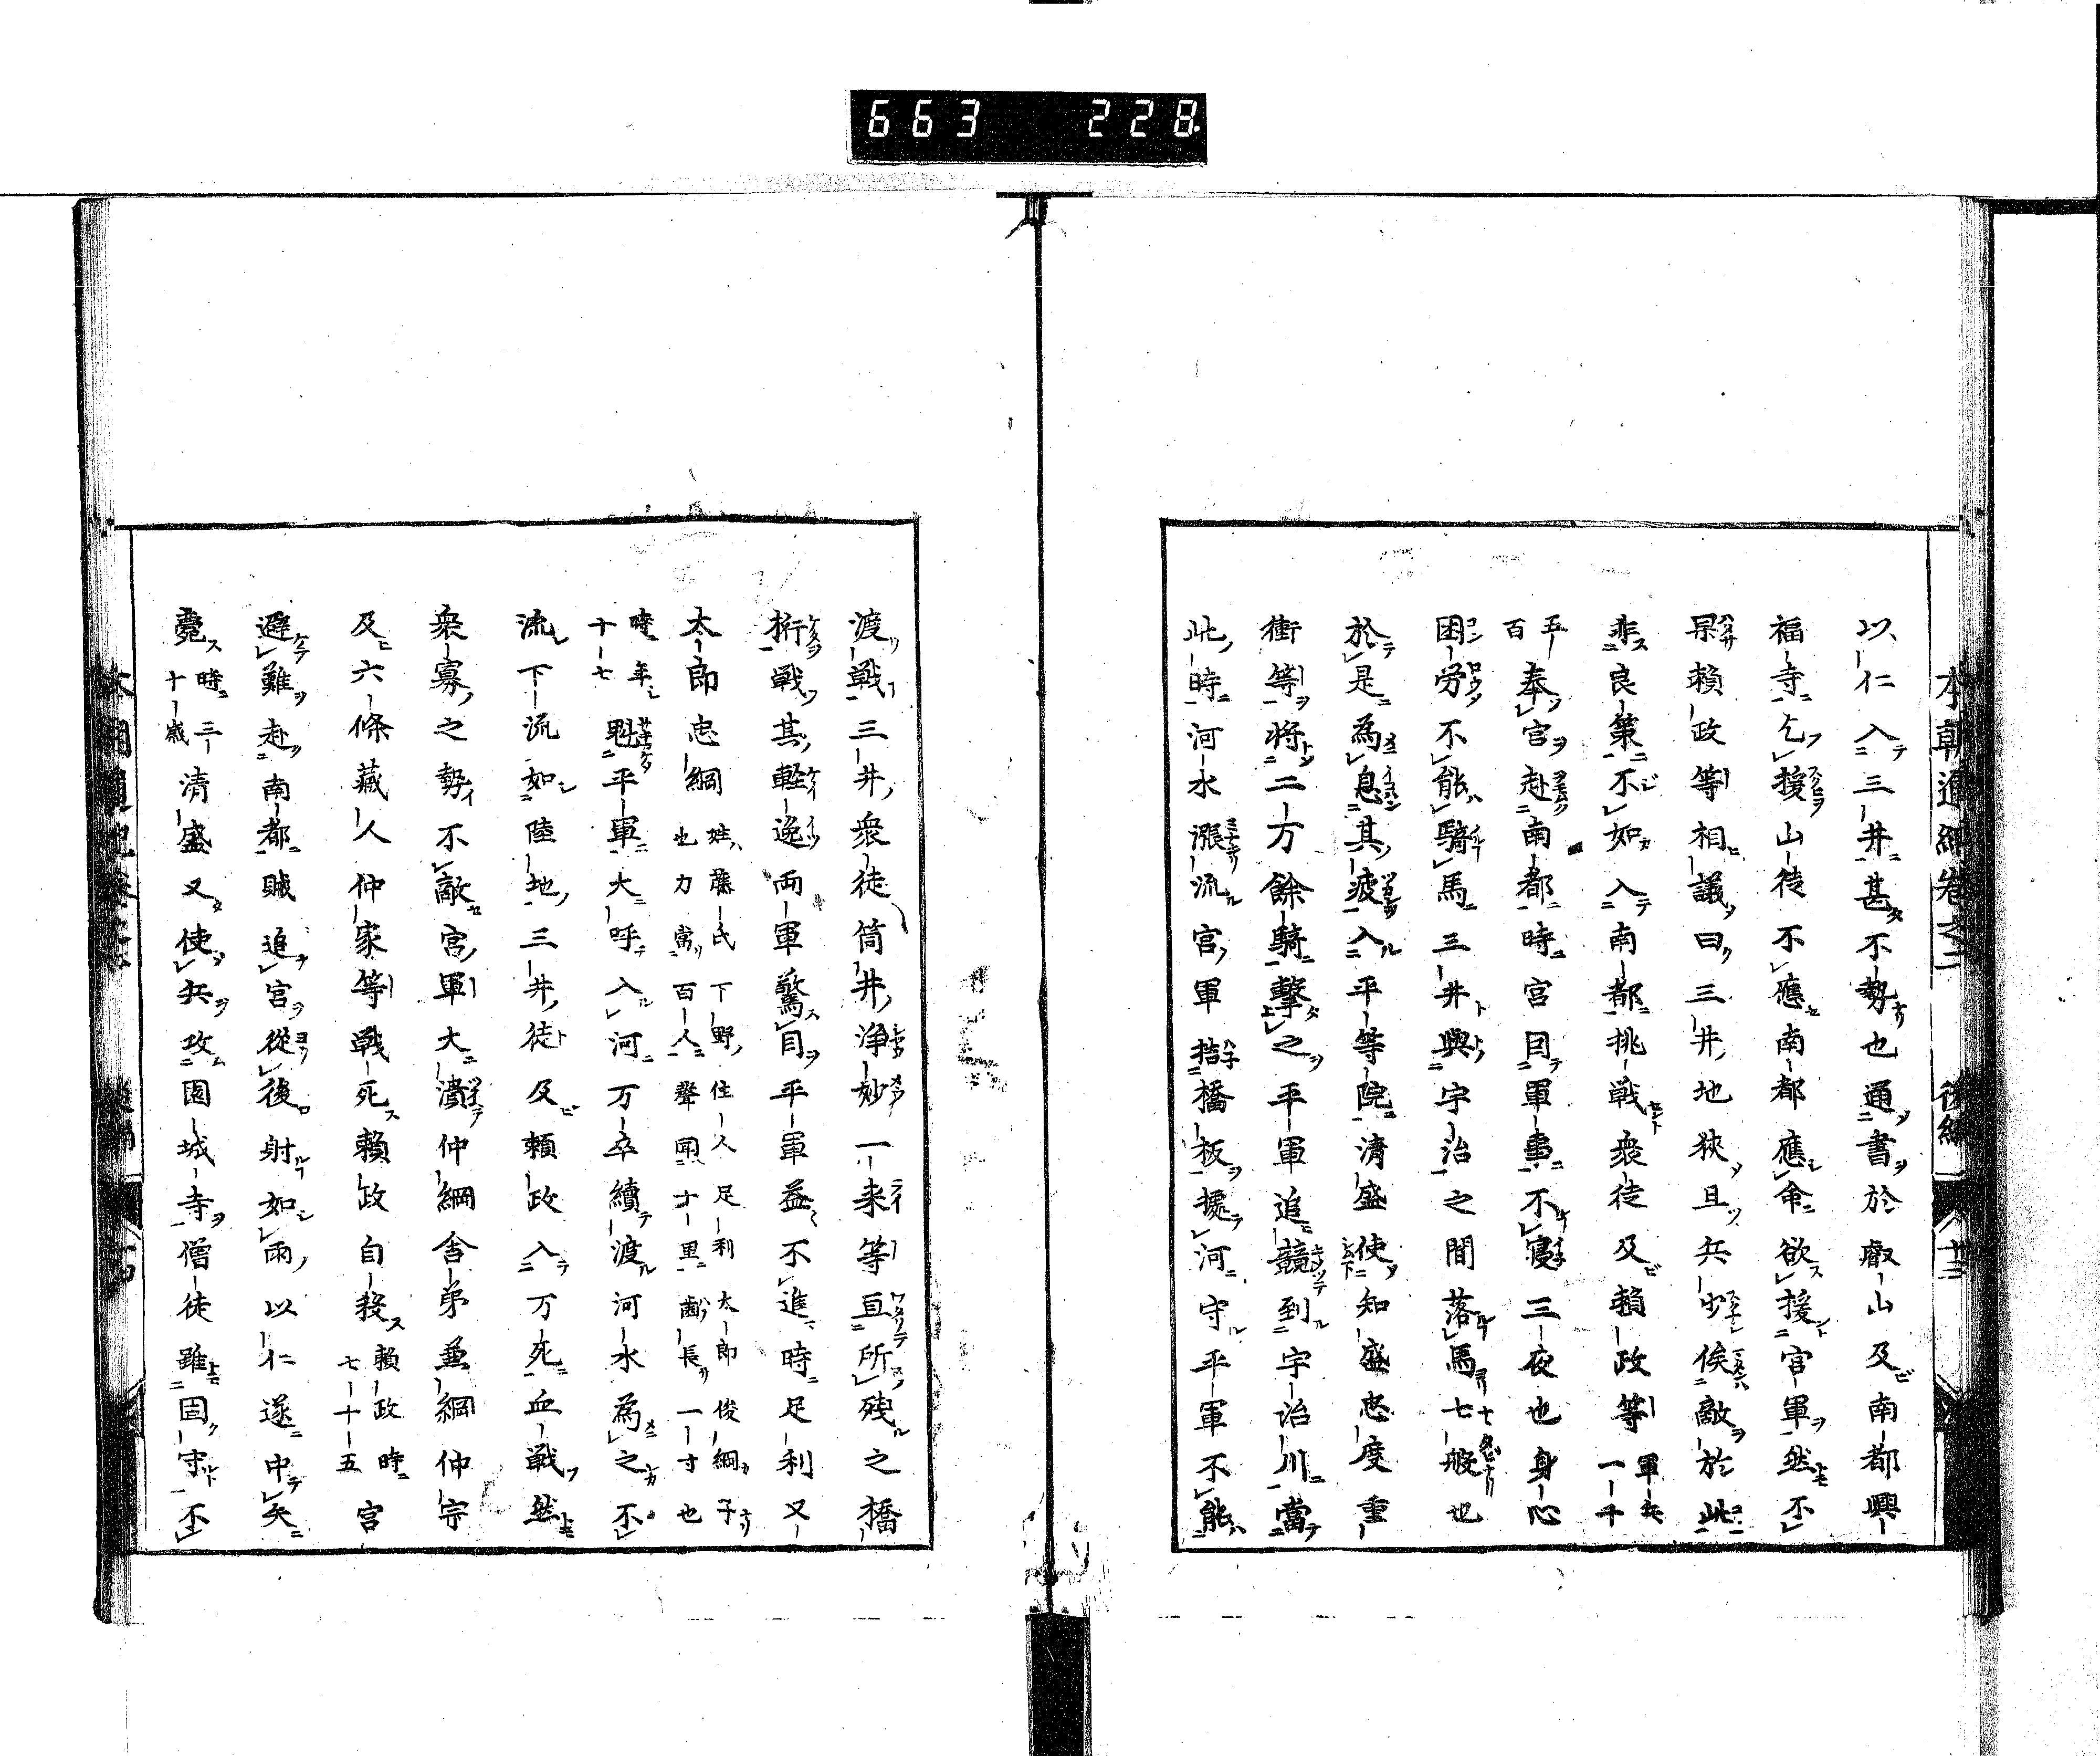 663 228
本朝通紀卷之二 後編
以仁入三井甚不勢也通書於叡山及南都興
福寺乞援山徒不應南都應命欲援宮軍然不
果賴政等相議曰三井地狹且兵少俟敵於此
非良策不如入南都挑戰衆徒及賴政等軍兵一千
五百奉宮赴南都時宮因軍事不寢三夜也身心
困勞不能騎馬三井與宇治之間落馬七般也
於是為息其疲入平等院清盛使知盛忠度重
衝等將二万餘騎擊之平軍追競到宇治川當
此時河水漲流宮軍橋板據河守平軍不能
渡戰三井衆徒筒井浄妙一来等亘所残之橋
桁戰其軽逸両軍驚目平軍益不進時足利又
太郎忠綱姓藤氏下野住人足利太郎俊綱子也力當百人聲聞十里齒長一寸也
時年十七魁平軍大呼入河万卒續渡河水為之不
流下流如陸地三井徒及賴政入万死血戰然
衆寡之勢不敵宮軍大潰仲綱舎弟兼綱仲宗
及六條藏人仲家等戰死賴政自殺賴政時七十五宮
避難赴南都賊追宮從後射如雨以仁遂中矢
薨時三十歳清盛又使兵攻園城寺僧徒雖固守不